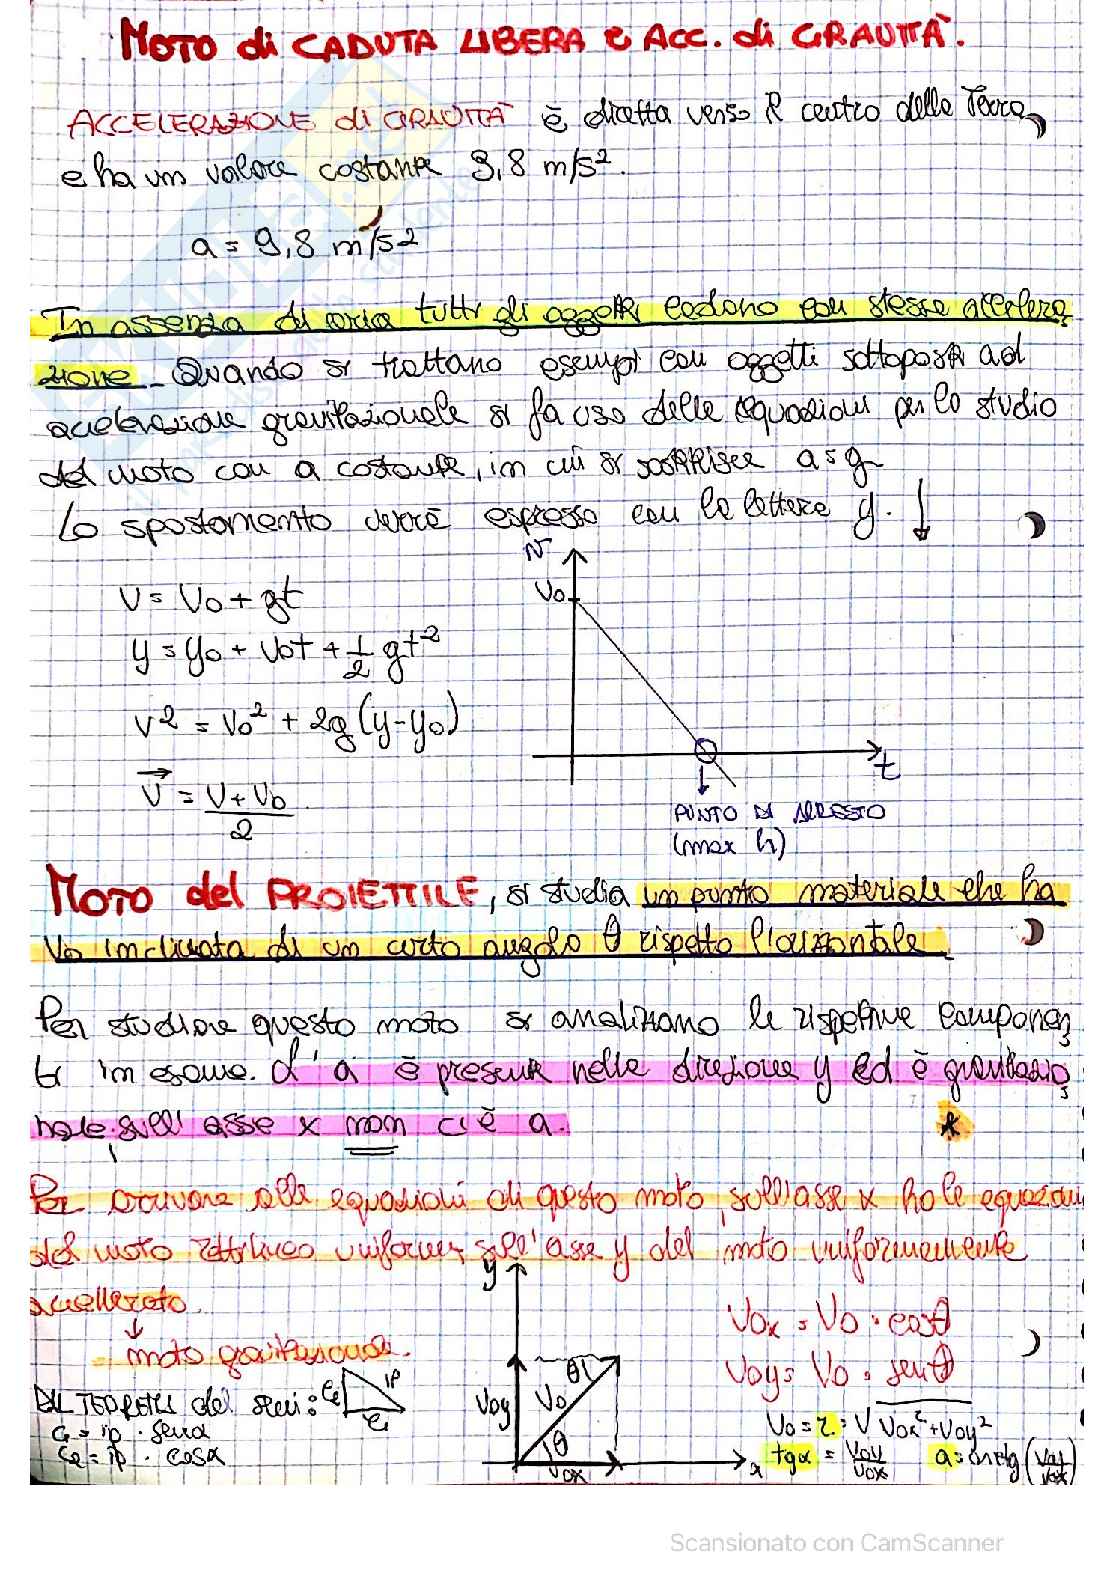 MOTO di CADUTA LIBERA e ACC. di GRAVITÀ.
ACCELERAZIONE di GRAVITÀ è diretta verso il centro della Terra,
e ha un valore costante 9,8 m/s².
a = 9,8 m/s²
In assenza di aria tutti gli oggetti cadono con stessa accelera
zione. Quando si trattano esempi con oggetti sottoposti ad
accelerazione gravitazionale si fa uso delle equazioni per lo studio
del moto con a costante, in cui si sostituisce a = g
Lo spostamento verrà espresso con la lettera y. ↓
v
V0
V = V0 + gt
y = y0 + V0t + 1/2 gt²
V² = V0² + 2g (y-y0)
t
V = V + V0 / 2
PUNTO DI ARRESTO
(max h)
MOTO del PROIETTILE, si studia un punto materiale che ha
V0 inclinata di un certo angolo θ rispetto l'orizzontale.
Per studiare questo moto si analizzano le rispettive componen
ti in esame. L'a è presente nella direzione y ed è gravitazio
nale, sull'asse x non c'è a. *
Per arrivare alle equazioni di questo moto, sull'asse x ho le equazioni
del moto rettilineo uniforme, sull'asse y del moto uniformemente
accellerato.
↓
moto gravitazionale.
y
V0x = V0 · cosθ
V0y = V0 · senθ
DAL TEOREMA dei seni: C2 ip C1
C1 = ip · senα
C2 = ip · cosα
V0y V0 θ θ
V0x x
V0 = r = √V0x² + V0y²
tgα = V0y / V0x a = arctg (V0y / V0x)
Scansionato con CamScanner